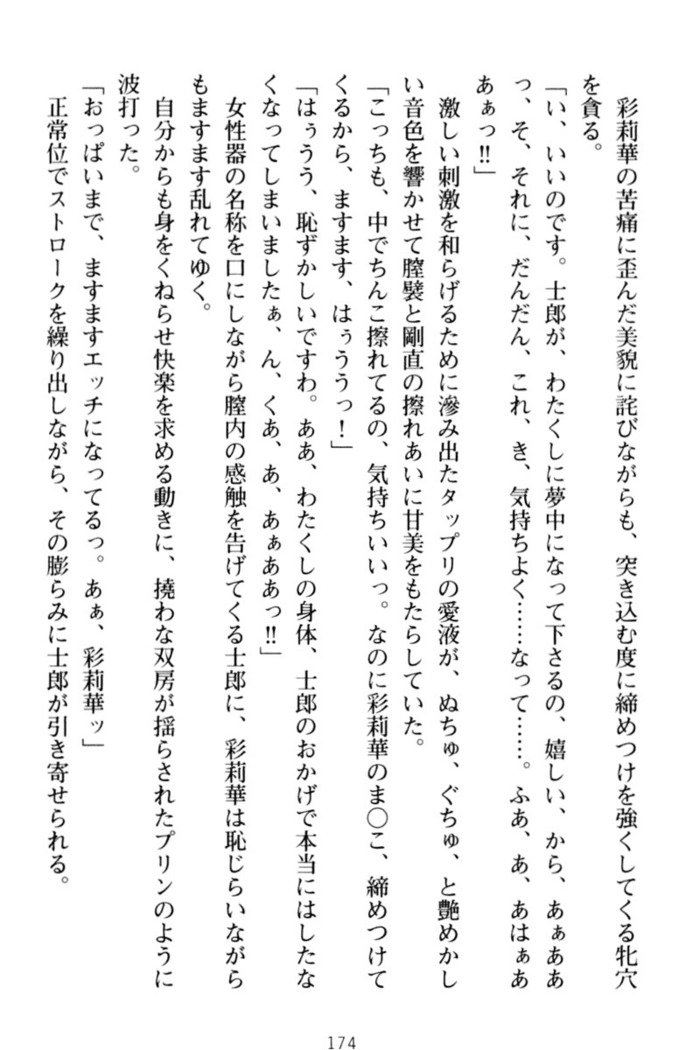 彩莉華の苦痛に歪んだ美貌に詫びながらも、突き込む度に締めつけを強くしてくる牝穴
を貪る。
「い、いいのです。士郎が、わたくしに夢中になって下さるの、嬉しい、から、あぁああ
っ、そ、それに、だんだん、これ、き、気持ちよく……なって……。ふあ、あ、あはぁあ
あぁっ!!」
激しい刺激を和らげるために滲み出たタップリの愛液が、ぬちゅ、ぐちゅ、と艶めかし
い音色を響かせて膣襞と剛直の擦れあいに甘美をもたらしていた。
「こっちも、中でちんこ擦れてるの、気持ちいいっ。なのに彩莉華のま〇こ、締めつけて
くるから、ますます、はぅううっ！」
「はぅうう、恥ずかしいですわ。ああ、わたくしの身体、士郎のおかげで本当にはしたな
くなってしまいましたぁ、ん、くあ、あ、あぁああっ!!」
女性器の名称を口にしながら膣内の感触を告げてくる士郎に、彩莉華は恥じらいながら
もますます乱れてゆく。
自分からも身をくねらせ快楽を求める動きに、撓わな双房が揺らされたプリンのように
波打った。
「おっぱいまで、ますますエッチになってるっ。あぁ、彩莉華ッ」
正常位でストロークを繰り出しながら、その膨らみに士郎が引き寄せられる。
174